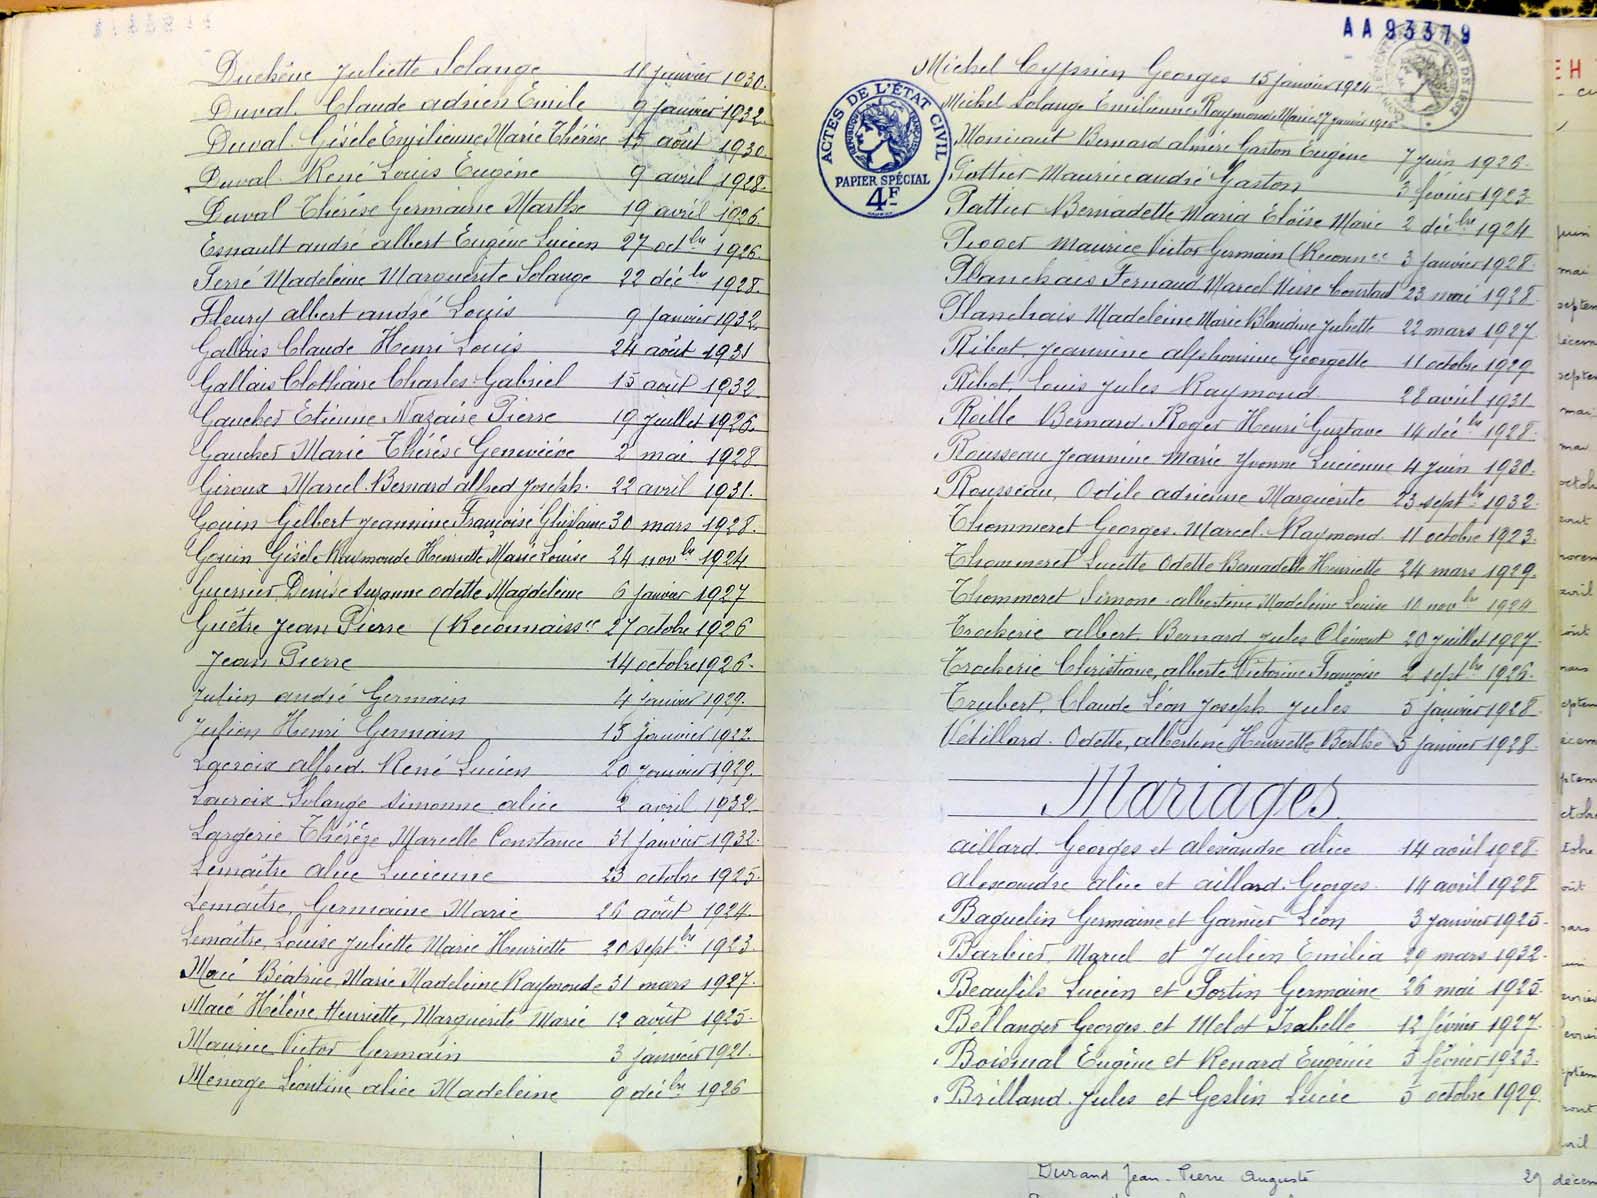 Duchêne Juliette Solange 11 janvier 1930.
Duval Claude adrien Emile 9 janvier 1932.
Duval Gisèle Emilienne Marie Thérèse 15 août 1930.
Duval René Louis Eugène 9 avril 1928.
Duval Thérèse Germaine Marthe 19 avril 1926.
Esnault andré albert Eugène Lucien 27 octbre 1926.
Ferré Madeleine Marguerite Solange 22 décbre 1928.
Fleury albert andré Louis 9 janvier 1932.
Gallais Claude Henri Louis 24 août 1931
Gallais Clothaire Charles Gabriel 15 août 1932
Gaucher Etienne Nazaire Pierre 19 juillet 1926.
Gaucher Marie Thérèse Geneviève 2 mai 1928
Giroux Marcel Bernard alfred Joseph. 22 avril 1931.
Gouin Gilbert Jeannine Françoise Ghislaine 30 mars 1928.
Gouin Gisèle Raymonde Henriette Marie Louise 24 novbre 1924
Guerrier Denise Suzanne odette Magdeleine 6 janvier 1927
Guêtre Jean Pierre (Reconnaissce 27 octobre 1926
Jean Pierre 14 octobre 1926.
Julien andré Germain 4 janvier 1929.
Julien Henri Germain 15 janvier 1927.
Lacroix alfred René Lucien 20 janvier 1929.
Lacroix Solange Simonne alice 2 avril 1932.
Largerie Thérèze Marcelle Constance 31 janvier 1932.
Lemaître alice Lucienne 23 octobre 1925.
Lemaître, Germaine Marie 26 août 1924.
Lemaître, Louise Juliette Marie Henriette 20 septbre 1923
Macé Béatrice Marie Madeleine Raymonde 31 mars 1927.
Macé Hélène Henriette, Marguerite Marie 12 août 1925.
Maurice Victor Germain 3 janvier 1921.
Menage Léontine alice Madeleine 9 décbre 1926
AA93379
ACTES DE L'ÉTAT CIVIL
RÉPUBLIQUE FRANÇAISE
PAPIER SPÉCIAL
4F
Michel Cyprien Georges 15 janvier 1924
Michel Solange Emilienne Raymonde Marie 27 janvier
Monicaut Bernard alméré Gaston Eugène 7 juin 1926.
Pottier Maurice andré Gaston 3 février 1923
Pattier Bernadette Maria Eloïse Marie 2 décbre 1924
Maurice Victor Germain (Reconnce 3 janvier 1928.
Planchais Fernand Marcel Constant 23 mai 1928
Planchais Madeleine Marie Blandine Juliette 22 mars 1927
Ribot, Jeannine alphonsine Georgette 11 octobre 1929
Ribot, Louis Jules Raymond 28 avril 1931
Roille Bernard Roger Henri Gustave 14 décbre 1928.
Rousseau Jeannine Marie Yvonne Lucienne 4 juin 1930.
Rousseau, Odile adrienne Marguerite 23 septbre 1932.
Thommeret Georges Marcel Raymond 11 octobre 1923.
Thommeret Lucette Odette Bernadette Henriette 24 mars 1929.
Thommeret Simone albertine Madeleine Louise 10 novbre 1924
Trocherie albert Bernard Jules Clément 20 juillet 1927.
Trocherie Christiane, alberte Victorine Françoise 2 septbre 1926.
Trubert, Claude Léon Joseph Jules 5 janvier 1928.
Vétillard. Odette, albertine Henriette Berthe 5 janvier 1928.
Mariages
aillard Georges et alexandre alice 14 avril 1928.
alexandre alice et aillard Georges. 14 avril 1928
Baguelin Germaine et Garnier Léon 3 janvier 1925.
Barbier, Marcel et Julien Emilia 29 mars 1932.
Beaufils Lucien et Fortin Germaine 26 mai 1925.
Bellanger Georges et Melot Isabelle 12 février 1927.
Boismal Eugène et Renard Eugénie 3 février 1923.
Brilland Jules et Geslin Lucie 5 octobre 1929.
Durand Jean-Pierre Auguste 29 décem